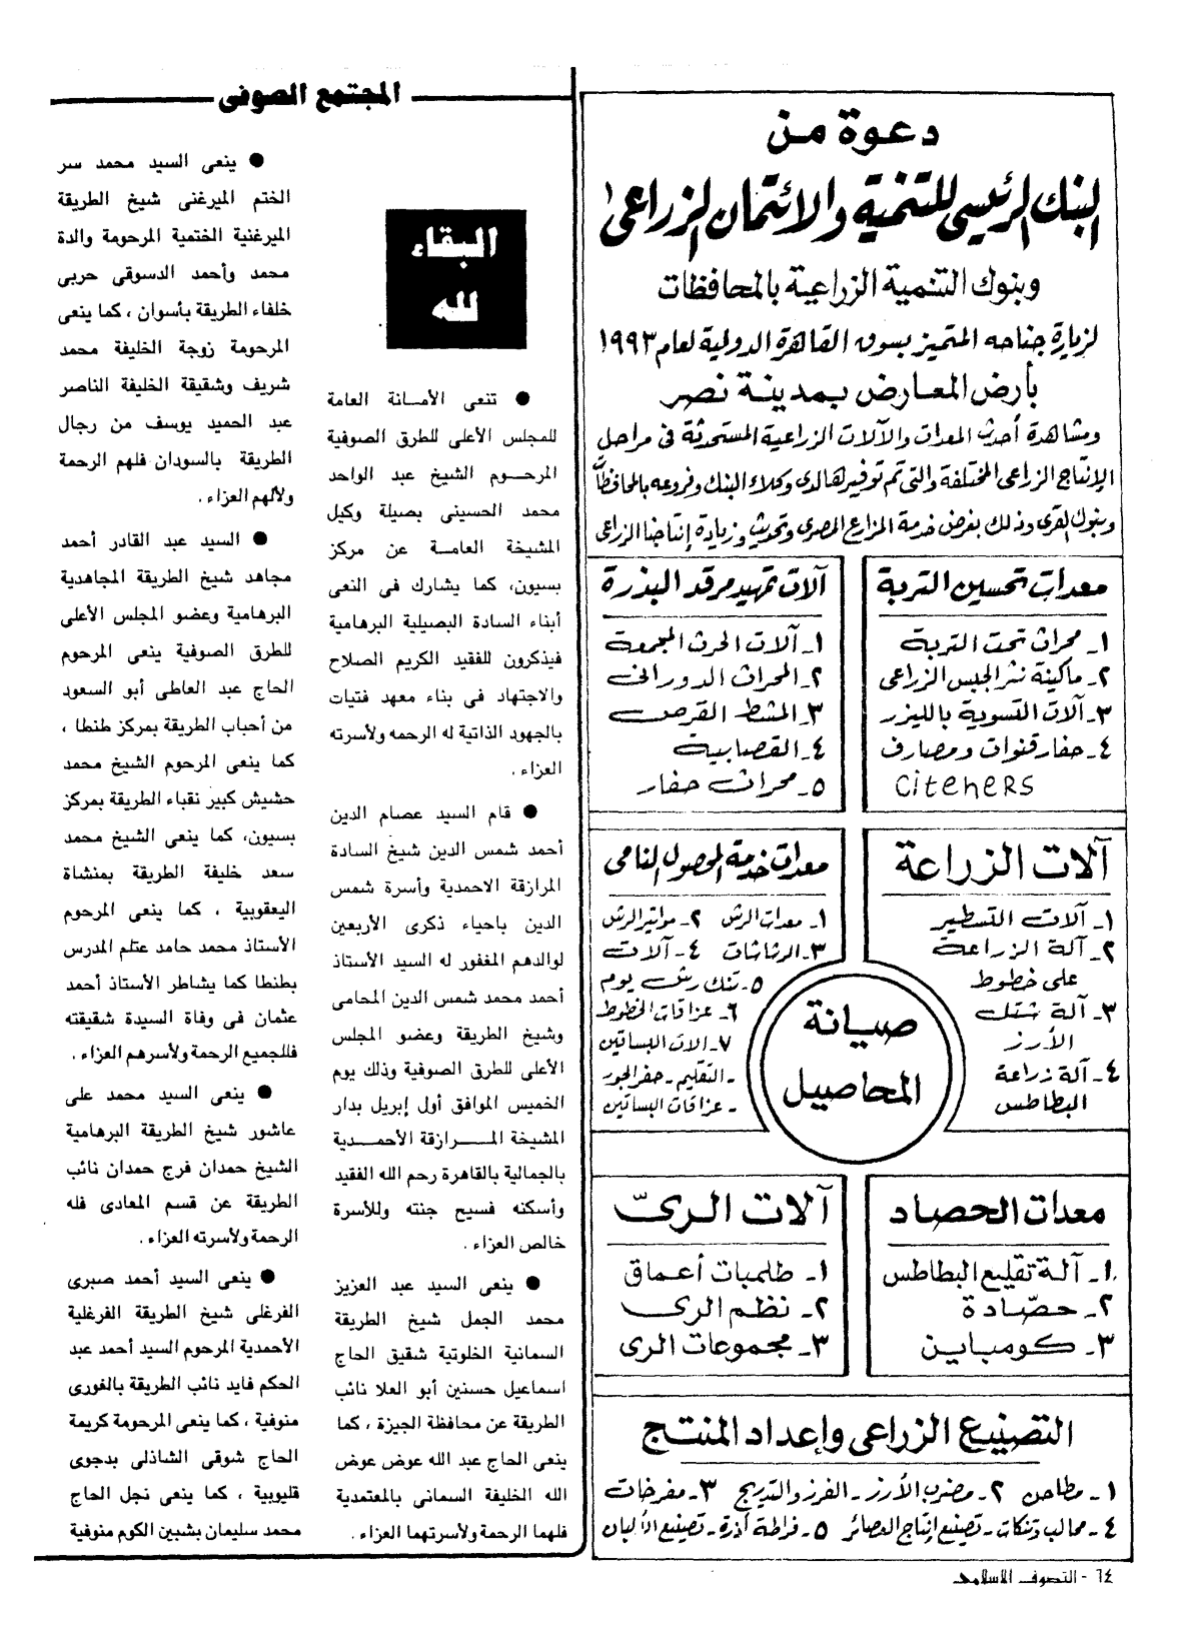 دعوة من
البنك الرئيسى للتنمية والائتمان الزراعى
وبنوك التنمية الزراعية بالمحافظات
لزيارة جناحه المتميز بسوق القاهرة الدولية لعام ١٩٩٣
بأرض المعارض بمدينة نصر
ومشاهدة أحدث المعدات والآلات الزراعية المستحدثة فى مراحل
الإنتاج الزراعى المختلفة والتى تم توفيرها لدى وكلاء البنك وفروعه بالمحافظات
وبنوك القرى وذلك بغرض خدمة المزارع المصرى وتحديث وزيادة إنتاجنا الزراعى
معدات تحسين التربة
١- محراث تحت التربة
٢- ماكينة نثر الجبس الزراعى
٣- آلات التسوية بالليزر
٤- حفار قنوات ومصارف
Citeners
آلات تمهيد مرقد البذرة
١- آلات الحرث المجمعة
٢- المحراث الدورانى
٣- المشط القرصى
٤- القصابية
٥- محراث حفار
آلات الزراعة
١- آلات التسطير
٢- آلة الزراعة
على خطوط
٣- آلة شتل
الأرز
٤- آلة زراعة
البطاطس
معدات خدمة المحصول النامى
١- معدات الرش ٢- مواتير الرش
٣- الرشاشات ٤- آلات
٥- تنك رش يوم
٦- عزاقات الخطوط
٧- الات البساتين
- التقليم - حفر الجور
- عزاقات البساتين
صيانة
المحاصيل
معدات الحصاد
١- آلة تقليع البطاطس
٢- حصّادة
٣- كومباين
آلات الرىّ
١- طلمبات أعماق
٢- نظم الرى
٣- مجموعات الرى
التصنيع الزراعى وإعداد المنتج
١- مطاحن ٢- مضرب الأرز - الفرز والتدريج ٣- مفرخات
٤- محالب وتنكات - تصنيع إنتاج العصائر ٥- فراطة أذرة - تصنيع الألبان
المجتمع الصوفى
البقاء
لله
● تنعى الأمـانة العامة
للمجلس الأعلى للطرق الصوفية
المرحـوم الشيخ عبد الواحد
محمد الحسينى بصيلة وكيل
المشيخة العامـة عن مركز
بسيون، كما يشارك فى النعى
أبناء السادة البصيلية البرهامية
فيذكرون للفقيد الكريم الصلاح
والاجتهاد فى بناء معهد فتيات
بالجهود الذاتية له الرحمه ولأسرته
العزاء .
● قام السيد عصام الدين
أحمد شمس الدين شيخ السادة
المرازقة الاحمدية وأسرة شمس
الدين باحياء ذكرى الأربعين
لوالدهم المغفور له السيد الأستاذ
أحمد محمد شمس الدين المحامى
وشيخ الطريقة وعضو المجلس
الأعلى للطرق الصوفية وذلك يوم
الخميس الموافق أول إبريل بدار
المشيخة المـــرازقة الأحمــدية
بالجمالية بالقاهرة رحم الله الفقيد
وأسكنه فسيح جنته وللأسرة
خالص العزاء .
● ينعى السيد عبد العزيز
محمد الجمل شيخ الطريقة
السمانية الخلوتية شقيق الحاج
اسماعيل حسنين أبو العلا نائب
الطريقة عن محافظة الجيزة ، كما
ينعى الحاج عبد الله عوض عوض
الله الخليفة السمانى بالمعتمدية
فلهما الرحمة ولأسرتهما العزاء .
● ينعى السيد محمد سر
الختم الميرغنى شيخ الطريقة
الميرغنية الختمية المرحومة والدة
محمد وأحمد الدسوقى حربى
خلفاء الطريقة بأسوان ، كما ينعى
المرحومة زوجة الخليفة محمد
شريف وشقيقة الخليفة الناصر
عبد الحميد يوسف من رجال
الطريقة بالسودان فلهم الرحمة
ولألهم العزاء .
● السيد عبد القادر أحمد
مجاهد شيخ الطريقة المجاهدية
البرهامية وعضو المجلس الأعلى
للطرق الصوفية ينعى المرحوم
الحاج عبد العاطى أبو السعود
من أحباب الطريقة بمركز طنطا ،
كما ينعى المرحوم الشيخ محمد
حشيش كبير نقباء الطريقة بمركز
بسيون، كما ينعى الشيخ محمد
سعد خليفة الطريقة بمنشاة
اليعقوبية ، كما ينعى المرحوم
الأستاذ محمد حامد عتلم المدرس
بطنطا كما يشاطر الأستاذ أحمد
عثمان فى وفاة السيدة شقيقته
فللجميع الرحمة ولأسرهم العزاء .
● ينعى السيد محمد على
عاشور شيخ الطريقة البرهامية
الشيخ حمدان فرج حمدان نائب
الطريقة عن قسم المعادى فله
الرحمة ولأسرته العزاء .
● ينعى السيد أحمد صبرى
الفرغلى شيخ الطريقة الفرغلية
الأحمدية المرحوم السيد أحمد عبد
الحكم فايد نائب الطريقة بالغورى
منوفية ، كما ينعى المرحومة كريمة
الحاج شوقى الشاذلى بدجوى
قليوبية ، كما ينعى نجل الحاج
محمد سليمان بشبين الكوم منوفية
٦٤ - التصوف الاسلامى